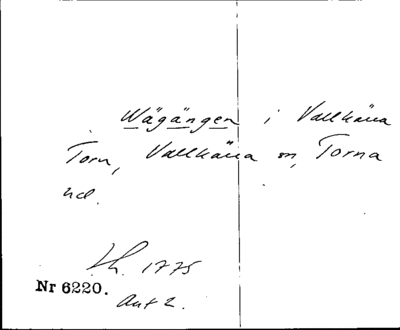 Wägängen i Vallkärra
Torn, Vallkärra sn, Torna
hd.
Lh. 1775
Nr 6220.
Akt 2.